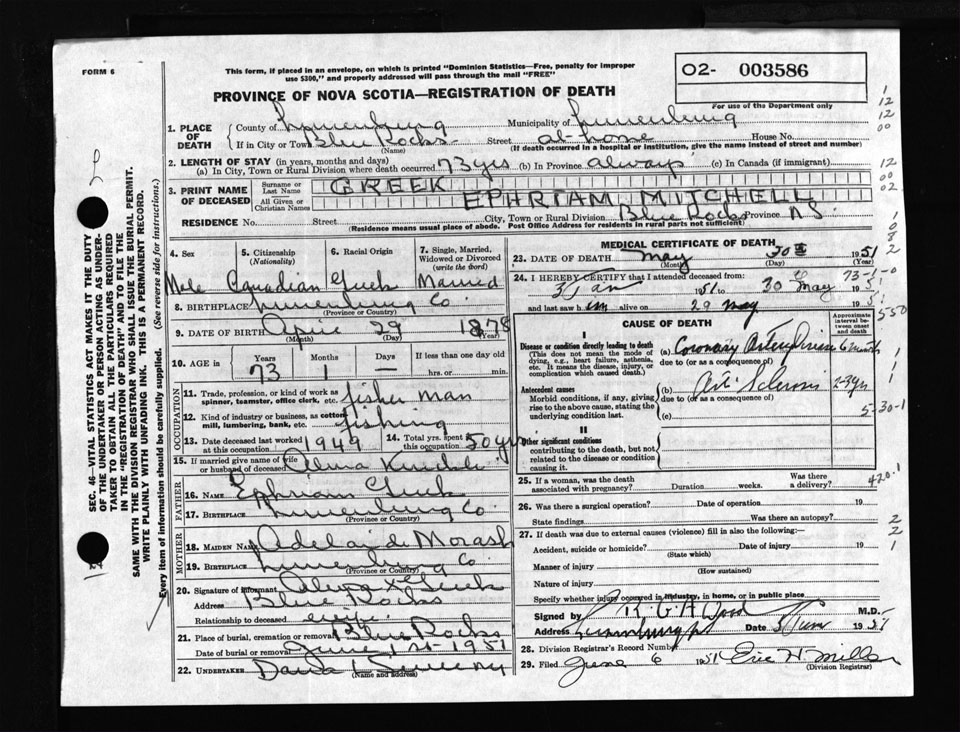 FORM 6
This form, if placed in an envelope, on which is printed "Dominion Statistics—Free, penalty for improper
use $300," and properly addressed will pass through the mail "FREE"
O2- 003586
For use of the Department only
PROVINCE OF NOVA SCOTIA—REGISTRATION OF DEATH
1. PLACE OF DEATH { County of Lunenburg Municipality of Lunenburg
If in City or Town Blue Rocks (Name) Street at home House No.
(If death occurred in a hospital or institution, give the name instead of street and number)
2. LENGTH OF STAY (in years, months and days)
(a) In City, Town or Rural Division where death occurred 73 yrs (b) In Province always (c) In Canada (if immigrant)
3. PRINT NAME OF DECEASED { Surname or Last Name GREEK
All Given or Christian Names EPHRIAM MITCHELL
RESIDENCE No. Street City, Town or Rural Division Blue Rocks Province N S
(Residence means usual place of abode. Post Office Address for residents in rural parts not sufficient)
4. Sex Male
5. Citizenship (Nationality) Canadian
6. Racial Origin
7. Single, Married, Widowed or Divorced (write the word) Married
8. BIRTHPLACE Lunenburg Co.
(Province or Country)
9. DATE OF BIRTH April 29 1878
(Month) (Day) (Year)
10. AGE in { Years Months Days If less than one day old
73 1 — hrs. or min.
OCCUPATION
11. Trade, profession, or kind of work as spinner, teamster, office clerk, etc. fisher man
12. Kind of industry or business, as cotton mill, lumbering, bank, etc. fishing
13. Date deceased last worked at this occupation 1949
14. Total yrs. spent in this occupation 50 yrs
15. If married give name of wife or husband of deceased
FATHER
16. NAME Ephriam Greek
17. BIRTHPLACE Lunenburg Co.
(Province or Country)
MOTHER
18. MAIDEN NAME Adelaide Morash
19. BIRTHPLACE Lunenburg Co
(Province or Country)
20. Signature of informant x Greek
Address Blue Rocks
Relationship to deceased wife
21. Place of burial, cremation or removal Blue Rocks
Date of burial or removal June 1st 1951
22. UNDERTAKER Sweeny
(Name and address)
MEDICAL CERTIFICATE OF DEATH
23. DATE OF DEATH May 30th 1951
(Month) (Day) (Year)
24. I HEREBY CERTIFY that I attended deceased from:
3 Jan 1951 to 30 May 1951
and last saw him alive on 29 May 1951
CAUSE OF DEATH
Approximate interval between onset and death
I
Disease or condition directly leading to death
(This does not mean the mode of dying, e.g., heart failure, asthenia, etc. It means the disease, injury, or complication which caused death.)
(a) Coronary Artery Disease 6 months
due to (or as a consequence of)
Antecedent causes
Morbid conditions, if any, giving rise to the above cause, stating the underlying condition last.
(b) Art. Sclerosis 2-3 yrs
due to (or as a consequence of)
(c)
II
Other significant conditions
contributing to the death, but not related to the disease or condition causing it.
25. If a woman, was the death associated with pregnancy? Duration weeks. Was there a delivery?
26. Was there a surgical operation? Date of operation 19
State findings Was there an autopsy?
27. If death was due to external causes (violence) fill in also the following:—
Accident, suicide or homicide? Date of injury 19
(State which)
Manner of injury
(How sustained)
Nature of injury
Specify whether injury occurred in industry, in home, or in public place
Signed by R. G. A. Wood M.D.
Address Lunenburg Date 1951
28. Division Registrar's Record Number
29. Filed June 6 1951 Eric H. Miller
(Division Registrar)
SEC. 46—VITAL STATISTICS ACT MAKES IT THE DUTY
OF THE UNDERTAKER OR PERSON ACTING AS UNDER-
TAKER TO OBTAIN ALL THE PARTICULARS REQUIRED
IN THE "REGISTRATION OF DEATH" AND TO FILE THE
SAME WITH THE DIVISION REGISTRAR WHO SHALL ISSUE THE BURIAL PERMIT.
WRITE PLAINLY WITH UNFADING INK. THIS IS A PERMANENT RECORD.
Every item of information should be carefully supplied. (See reverse side for instructions.)
1
12
12
00
12
00
02
73-1-0
550
5-30-1
420.1
2
2
1